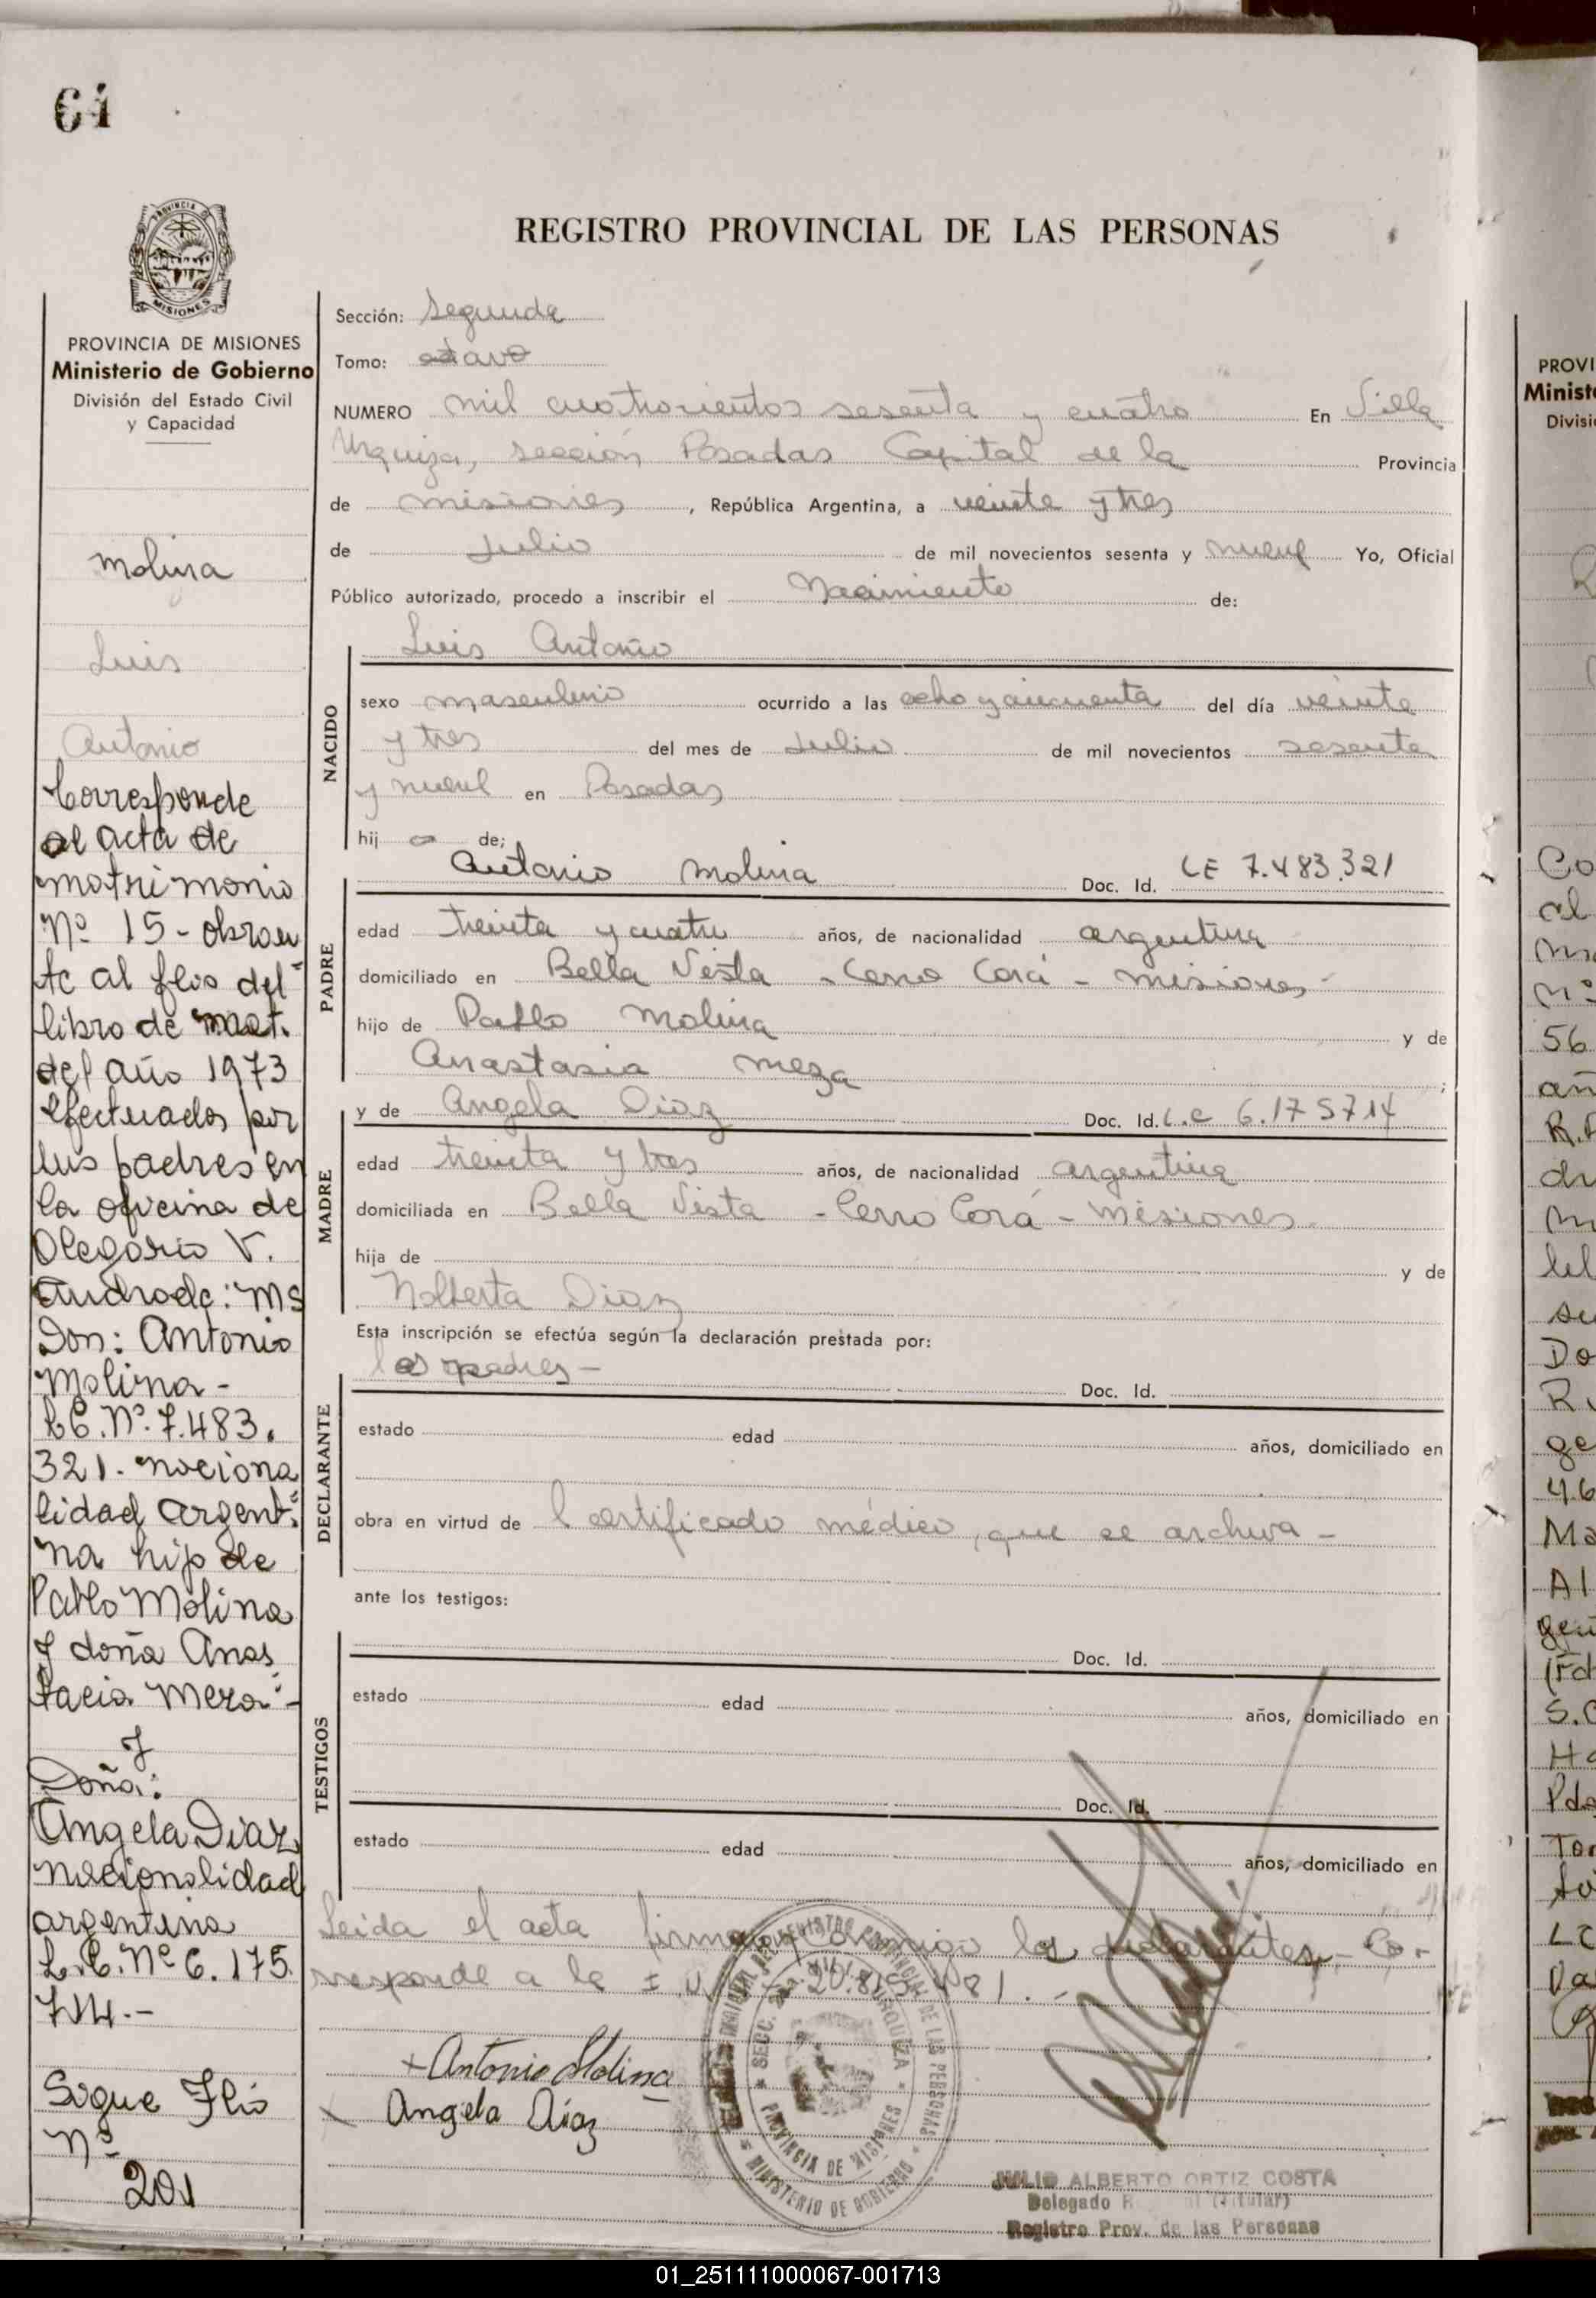 64
PROVINCIA DE
MISIONES
PROVINCIA DE MISIONES
Ministerio de Gobierno
División del Estado Civil
y Capacidad
Molina
Luis
Antonio
Corresponde
al acta de
matrimonio
Nº 15 - obran
te al flio del
libro de mat.
del año 1973
efectuados por
sus padres en
la oficina de
Olegario V.
Andrade: Ms
Don: Antonio
Molina -
L.E. Nº 7.483.
321. naciona
lidad argenti
na hijo de
Pablo Molina
y doña Anas
tacia Meza -
y
Doña:
Angela Diaz
nacionalidad
argentina
L.C. Nº 6.175.
714.-
Sigue Flio
Nº
201
REGISTRO PROVINCIAL DE LAS PERSONAS
Sección: Segunda
Tomo: octavo
NUMERO mil cuatrocientos sesenta y cuatro En Villa
Urquiza, sección Posadas Capital de la Provincia
de Misiones, República Argentina, a veinte y tres
de Julio de mil novecientos sesenta y nueve Yo, Oficial
Público autorizado, procedo a inscribir el Nacimiento de:
NACIDO
Luis Antonio
sexo masculino ocurrido a las ocho y cincuenta del día veinte
y tres del mes de Julio de mil novecientos sesenta
y nueve en Posadas
hij o de;
PADRE
Antonio Molina Doc. Id. LE 7.483.321
edad treinta y cuatro años, de nacionalidad argentina
domiciliado en Bella Vista - Cerro Corá - Misiones -
hijo de Pablo Molina y de
Anastasia Meza ;
MADRE
y de Angela Diaz Doc. Id. L.C 6.175714
edad treinta y tres años, de nacionalidad argentina
domiciliada en Bella Vista - Cerro Corá - Misiones.
hija de y de
Nolberta Diaz
Esta inscripción se efectúa según la declaración prestada por:
DECLARANTE
los padres - Doc. Id.
estado edad años, domiciliado en
obra en virtud de l certificado médico, que se archiva -
ante los testigos:
TESTIGOS
Doc. Id.
estado edad años, domiciliado en
Doc. Id.
estado edad años, domiciliado en
Leida el acta firman conmigo los declarantes - Co-
rresponde a la
+ Antonio Molina
x Angela Diaz
REGISTRO PROVINCIAL DE LAS PERSONAS
MINISTERIO DE GOBIERNO
PROVINCIA DE MISIONES
JULIO ALBERTO ORTIZ COSTA
Delegado (Titular)
Registro Prov. de las Personas
PROVI
Minist
Divisi
Co
al
56
añ
R.
Do
46
Ma
Al
S.
LC
01_251111000067-001713